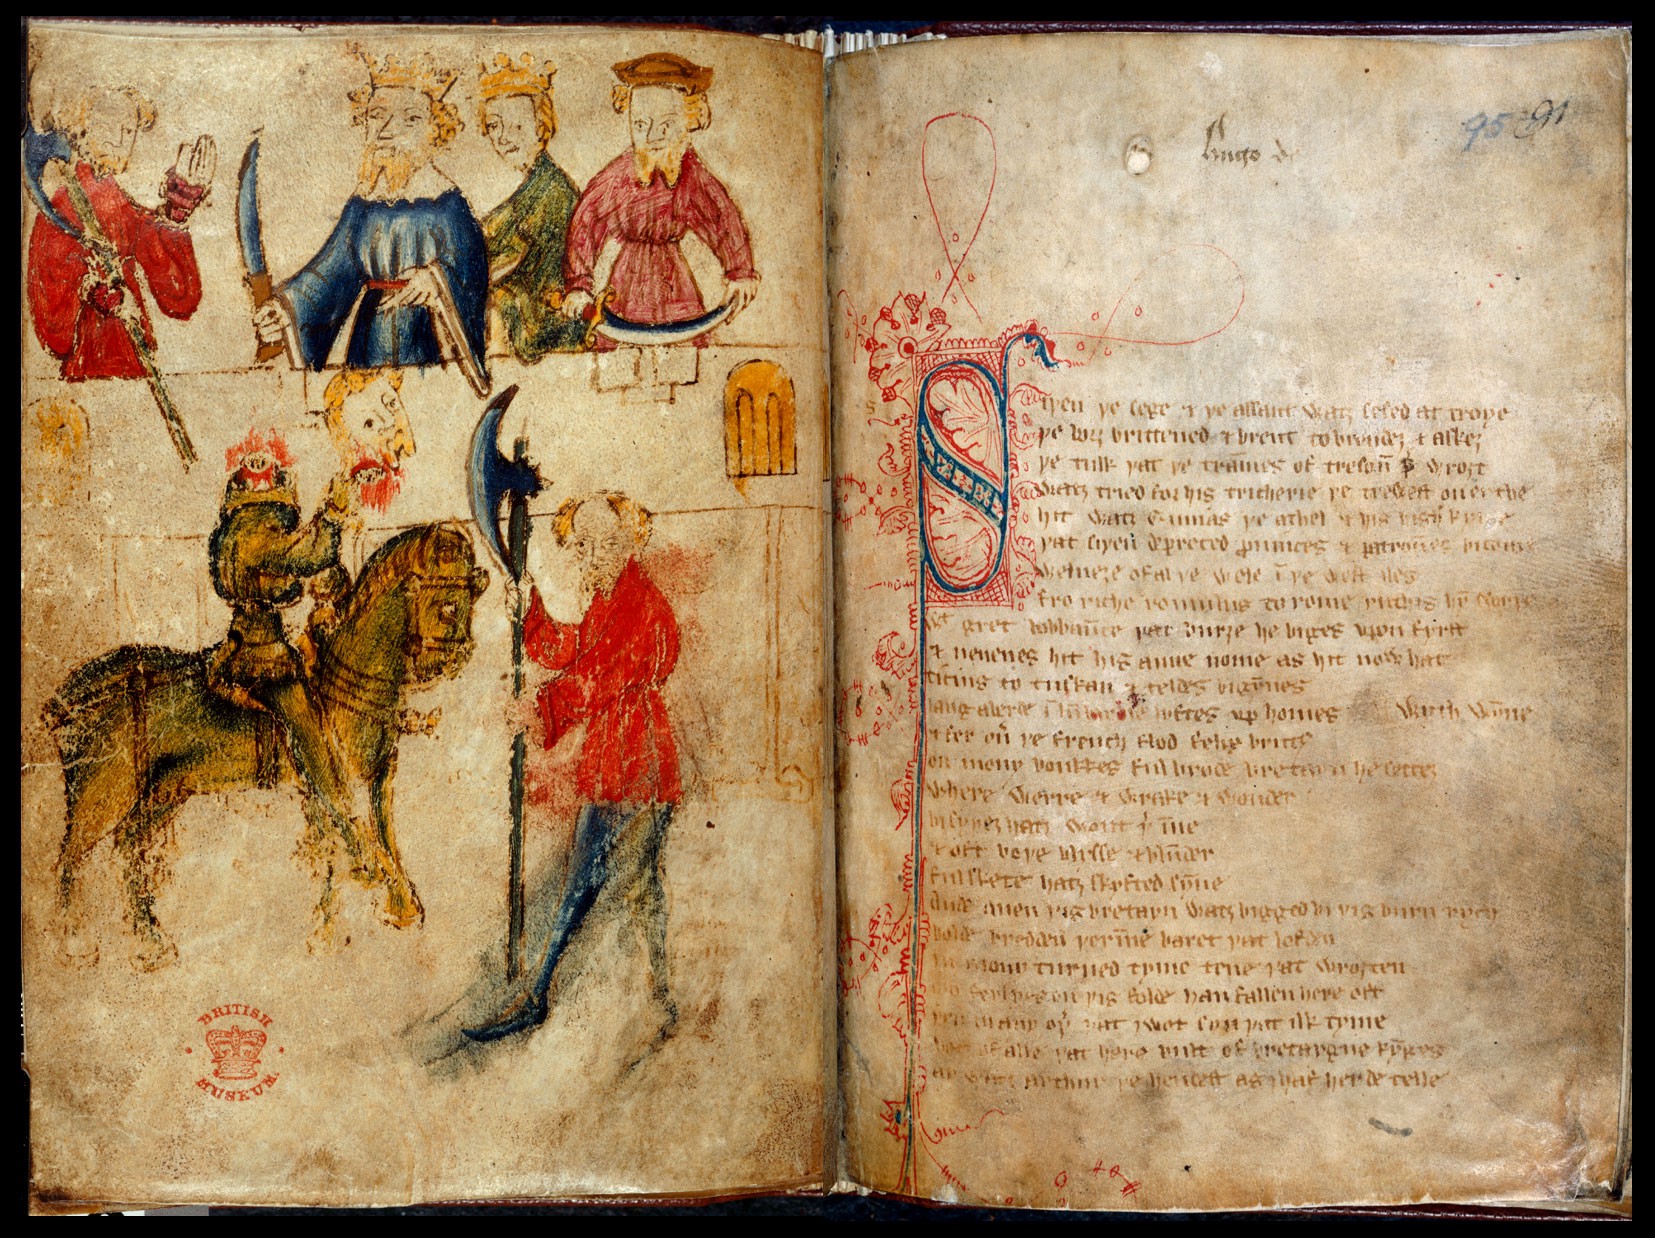 BRITISH
MUSEUM
95 91
Hugo de
Siþen þe sege & þe assaut watȝ sesed at troye
þe borȝ brittened & brent to brondeȝ & askeȝ
þe tulk þat þe trāmes of tresoū þ̄ wroȝt
watȝ tried for his tricherie þe trewest on erthe
hit watȝ Ennias þe athel & his highe kynde
þat siþen depreced prouinces & patroūes bicome
welneȝe of al þe wele ī þe west iles
fro riche romulus to rome ricchis hȳ swyþe
wt gret bobbaūce þat burȝe he biges vpon fyrst
& neuenes hit his aune nome as hit now hat
ticius to tuskan & teldes bigȳnes
langaberde ī lūbardie lyftes vp homes wyth wȳne
& fer ou̾ þe french flod felix brutꝰ
on mony bonkkes ful brode bretayn he setteȝ
where werre & wrake & wonder
bi syþeȝ hatȝ wont þ̾ īne
& oft boþe blysse & blūder
ful skete hatȝ skyfted sȳne
Ande quen þis bretayn watȝ bigged bi þis burn rych
bolde bredden þerīne baret þat lofden
in mony turned tyme tene þat wroȝten
mo ferlyes on þis folde han fallen here oft
þen in any oþ̾ þat I wot syn þat ilk tyme
bot of alle þat here bult of bretaygne kȳges
ay watȝ arthur þe hendest as I haf herde telle